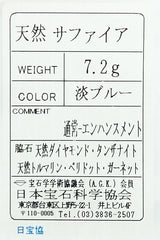 天然 サファイア
WEIGHT 7.2g
COLOR 淡ブルー
COMMENT
通常-エンハンスメント
脇石 天然ダイヤモンド・タンザナイト
天然トルマリン・ペリドット・ガーネット
宝石学学術協議会(A.G.K.)会員
日本宝石科学協会
東京都台東区上野5-22-1 井上ビル4F
〒110-0005 Tel.(03)3836-2507
日宝協